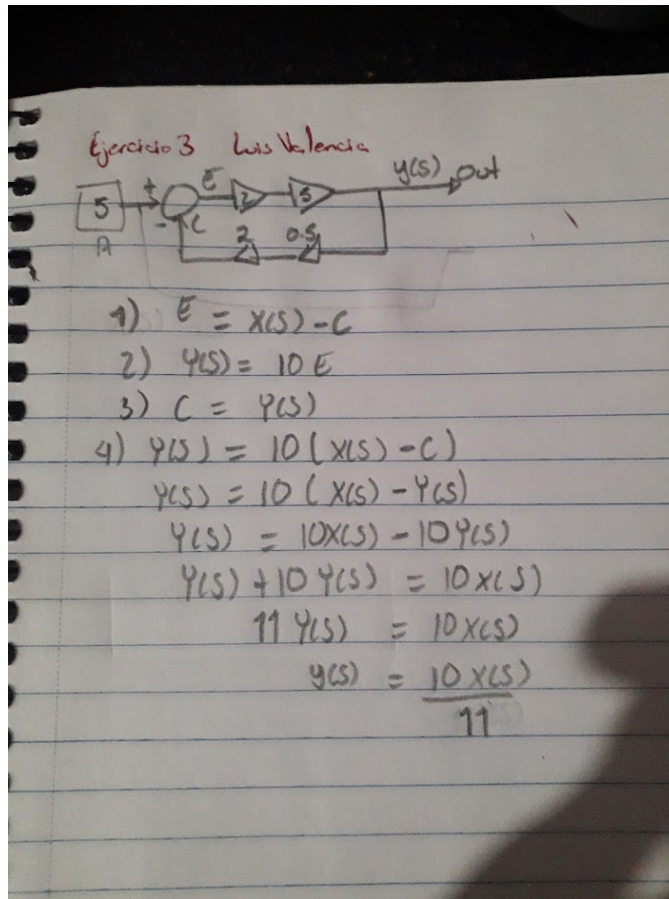 Ejercicio 3 Luis Valencia
y(s) Out
5 + E 2 5
- C 2 0.5
A
1) E = X(S) - C
2) Y(S) = 10 E
3) C = Y(S)
4) Y(S) = 10 ( X(S) - C )
Y(S) = 10 ( X(S) - Y(S)
Y(S) = 10X(S) - 10Y(S)
Y(S) + 10 Y(S) = 10 X(S)
11 Y(S) = 10 X(S)
y(s) = 10 X(S)
11